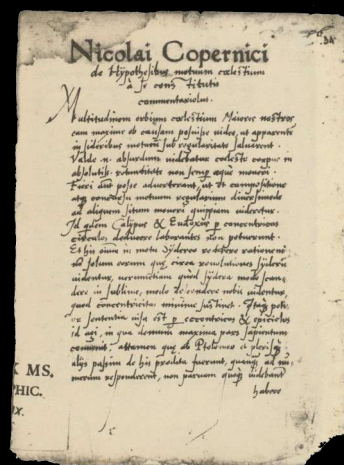 34
Nicolai Copernici
de Hypothesibus motuum cœlestium
à se constitutis
commentariolus.
Multitudinem orbium cœlestium Maiores nostros
eam maxime ob causam posuisse video, ut apparentem
in sideribus motum sub regularitate salvarent.
Valde n. absurdum videbatur cœleste corpus in
absolutiss. rotunditate non semp æque moveri.
Fieri aut posse adverterant, ut et compositione
atq concursu motuum regularium diversimode
ad aliquem situm moveri quippiam videretur.
Id qdem Calippus & Eudoxus p concentricos
circulos deducere laborantes non potuerunt
Et his oium in motu sydereo reddere rationem
nō solum eorum quæ circa revolutiones syderū
videntur, verumetiam quod sydera modo scan-
dere in sublime, modo descendere nobis videntur,
quod concentricitas minime sustinet. Itaq potior
sententia visa est p eccentricos & epiciclos
id agi, in qua demum maxima pars sapientum
convenit, attamen quæ ab Ptolemeo et plerisq
alijs passim de his prodita fuerunt, quanq ad nu-
merum responderent, non parvam quoq videbant
habere
X MS.
PHIC.
IX.